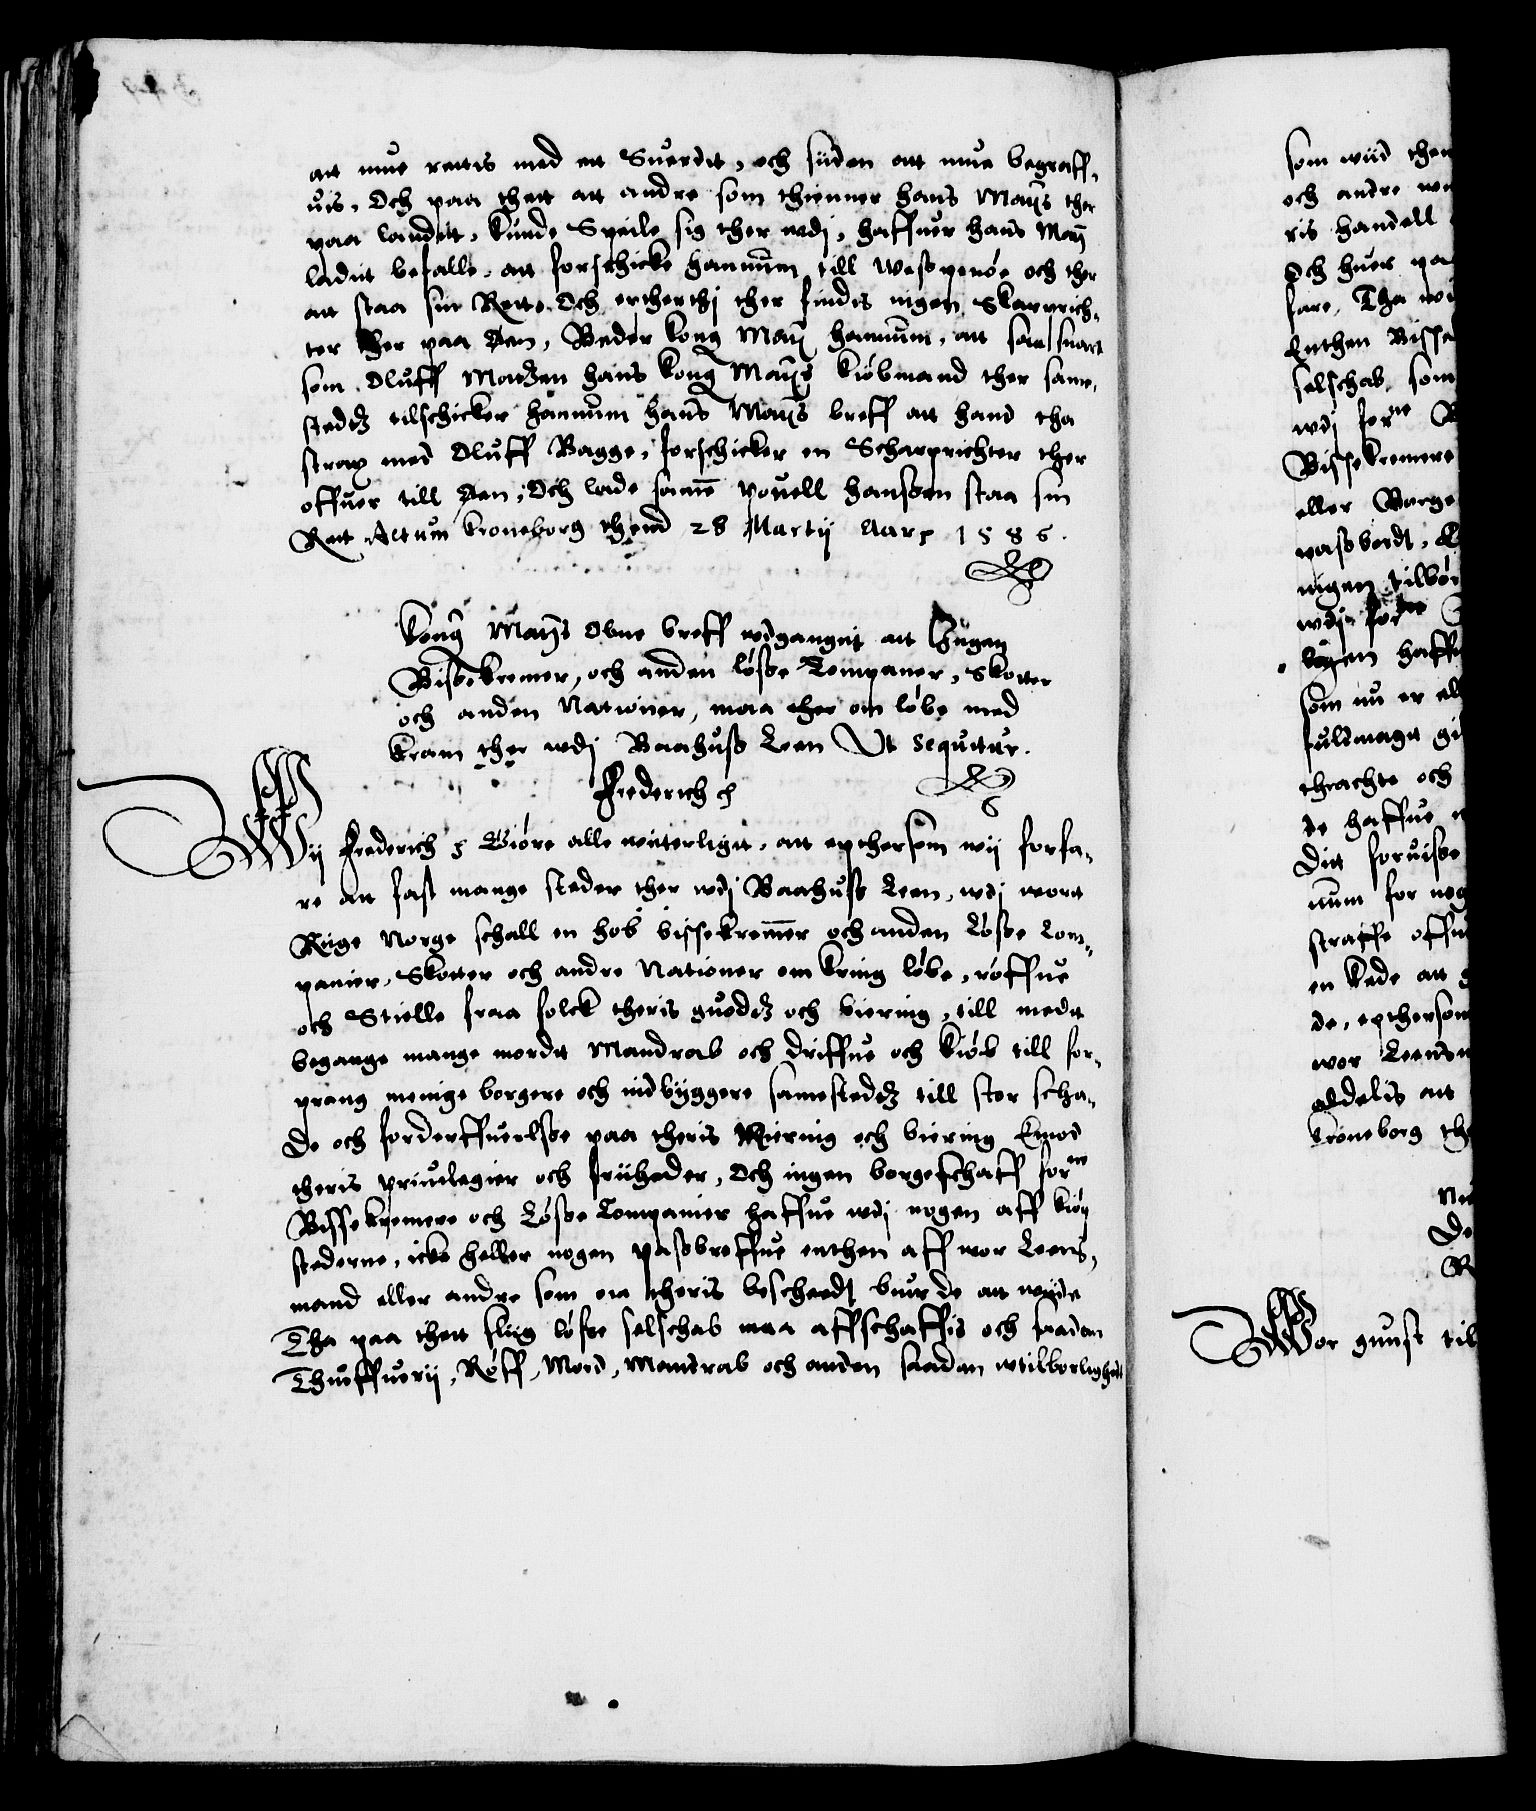 att mue rettis med ett Suerdtt, och siiden att mue begraff,
uis, Och paa thett att andre som thienner hans Maytts ther
paa landett, kunde Speile sig ther udj, haffuer hans Maytt
ladiit befalle, att forschicke hannum till Westpenøe och ther
att staa siin Rette. Och ertherthj ther findes ingen Skarprich,
ter ther paa Øen, Beder kong Maytt hannum, att saa snart
som Oluff Matzen hans kong Maytts kiøbmand ther same,
stedtz tilschicker hannum hans Maytts breff att hand tha
strax med Oluff Bagge, forschicker en Scharprichter ther
offuer till Øen, Och lade same Pouell Hanssen staa sin
Rett Actum Kroneborg thend 28 Martij Aar 1586.
Kong Mayts obne breff udgangit att Inngen
Bissekremer, och anden løsse Companer, Skotter
och anden Nationer, maa ther om løbe med
kram ther udj Baahuss Leen Ut sequitur.
Frederich
Wij Frederich Giøre alle witterligit, att epthersom wij forfa,
re att fast mange steder ther udj Baahuss Leen, udj wortt
Riige Norge schall en hob bissekremer och anden Løsse Com,
panier, Skotter och andre Nationer om kring løbe, røffue
och Stielle fraa folck theris guodtz och biering, till medtt
begange mange mordtt Mandrab och driffue och kiøb till for,
prang menige borgere och indbyggere samestedtz till stor scha,
de och forderffuelsse paa theris Niering och biering Emod
theris priuilegier och friiheder, Och ingen borgeschaff forne
Bissekremere och Løsse Companier haffue udj nogen aff kiøp
stederne, icke heller nogen passbreffue enthen aff wor Leens,
mand eller andre som om theris beschedt buurde att wiide
Tha paa thett sliig løsse selschab maa affschaffis och saadan
Thuoffuerij, Røff, Mord, Mandrab och anden saadan utilborlighed
som wiid then
och andre
ris handell
Och huer paa
fare, Tha wi
Enthen Bisse
selschab som
udj forne B
Bissekremere
eller Borge
passbordt,
ingen tilbør
udj forne
bøgen haffu
som nu er al
fuldmagtt gi
thrachte och
de haffue
Ditt foruisse
num for nog
straffe offu
en kede att
de, epthersom
wor Leens
aldelis att
Croneborg th
De
R
Wor gunst til